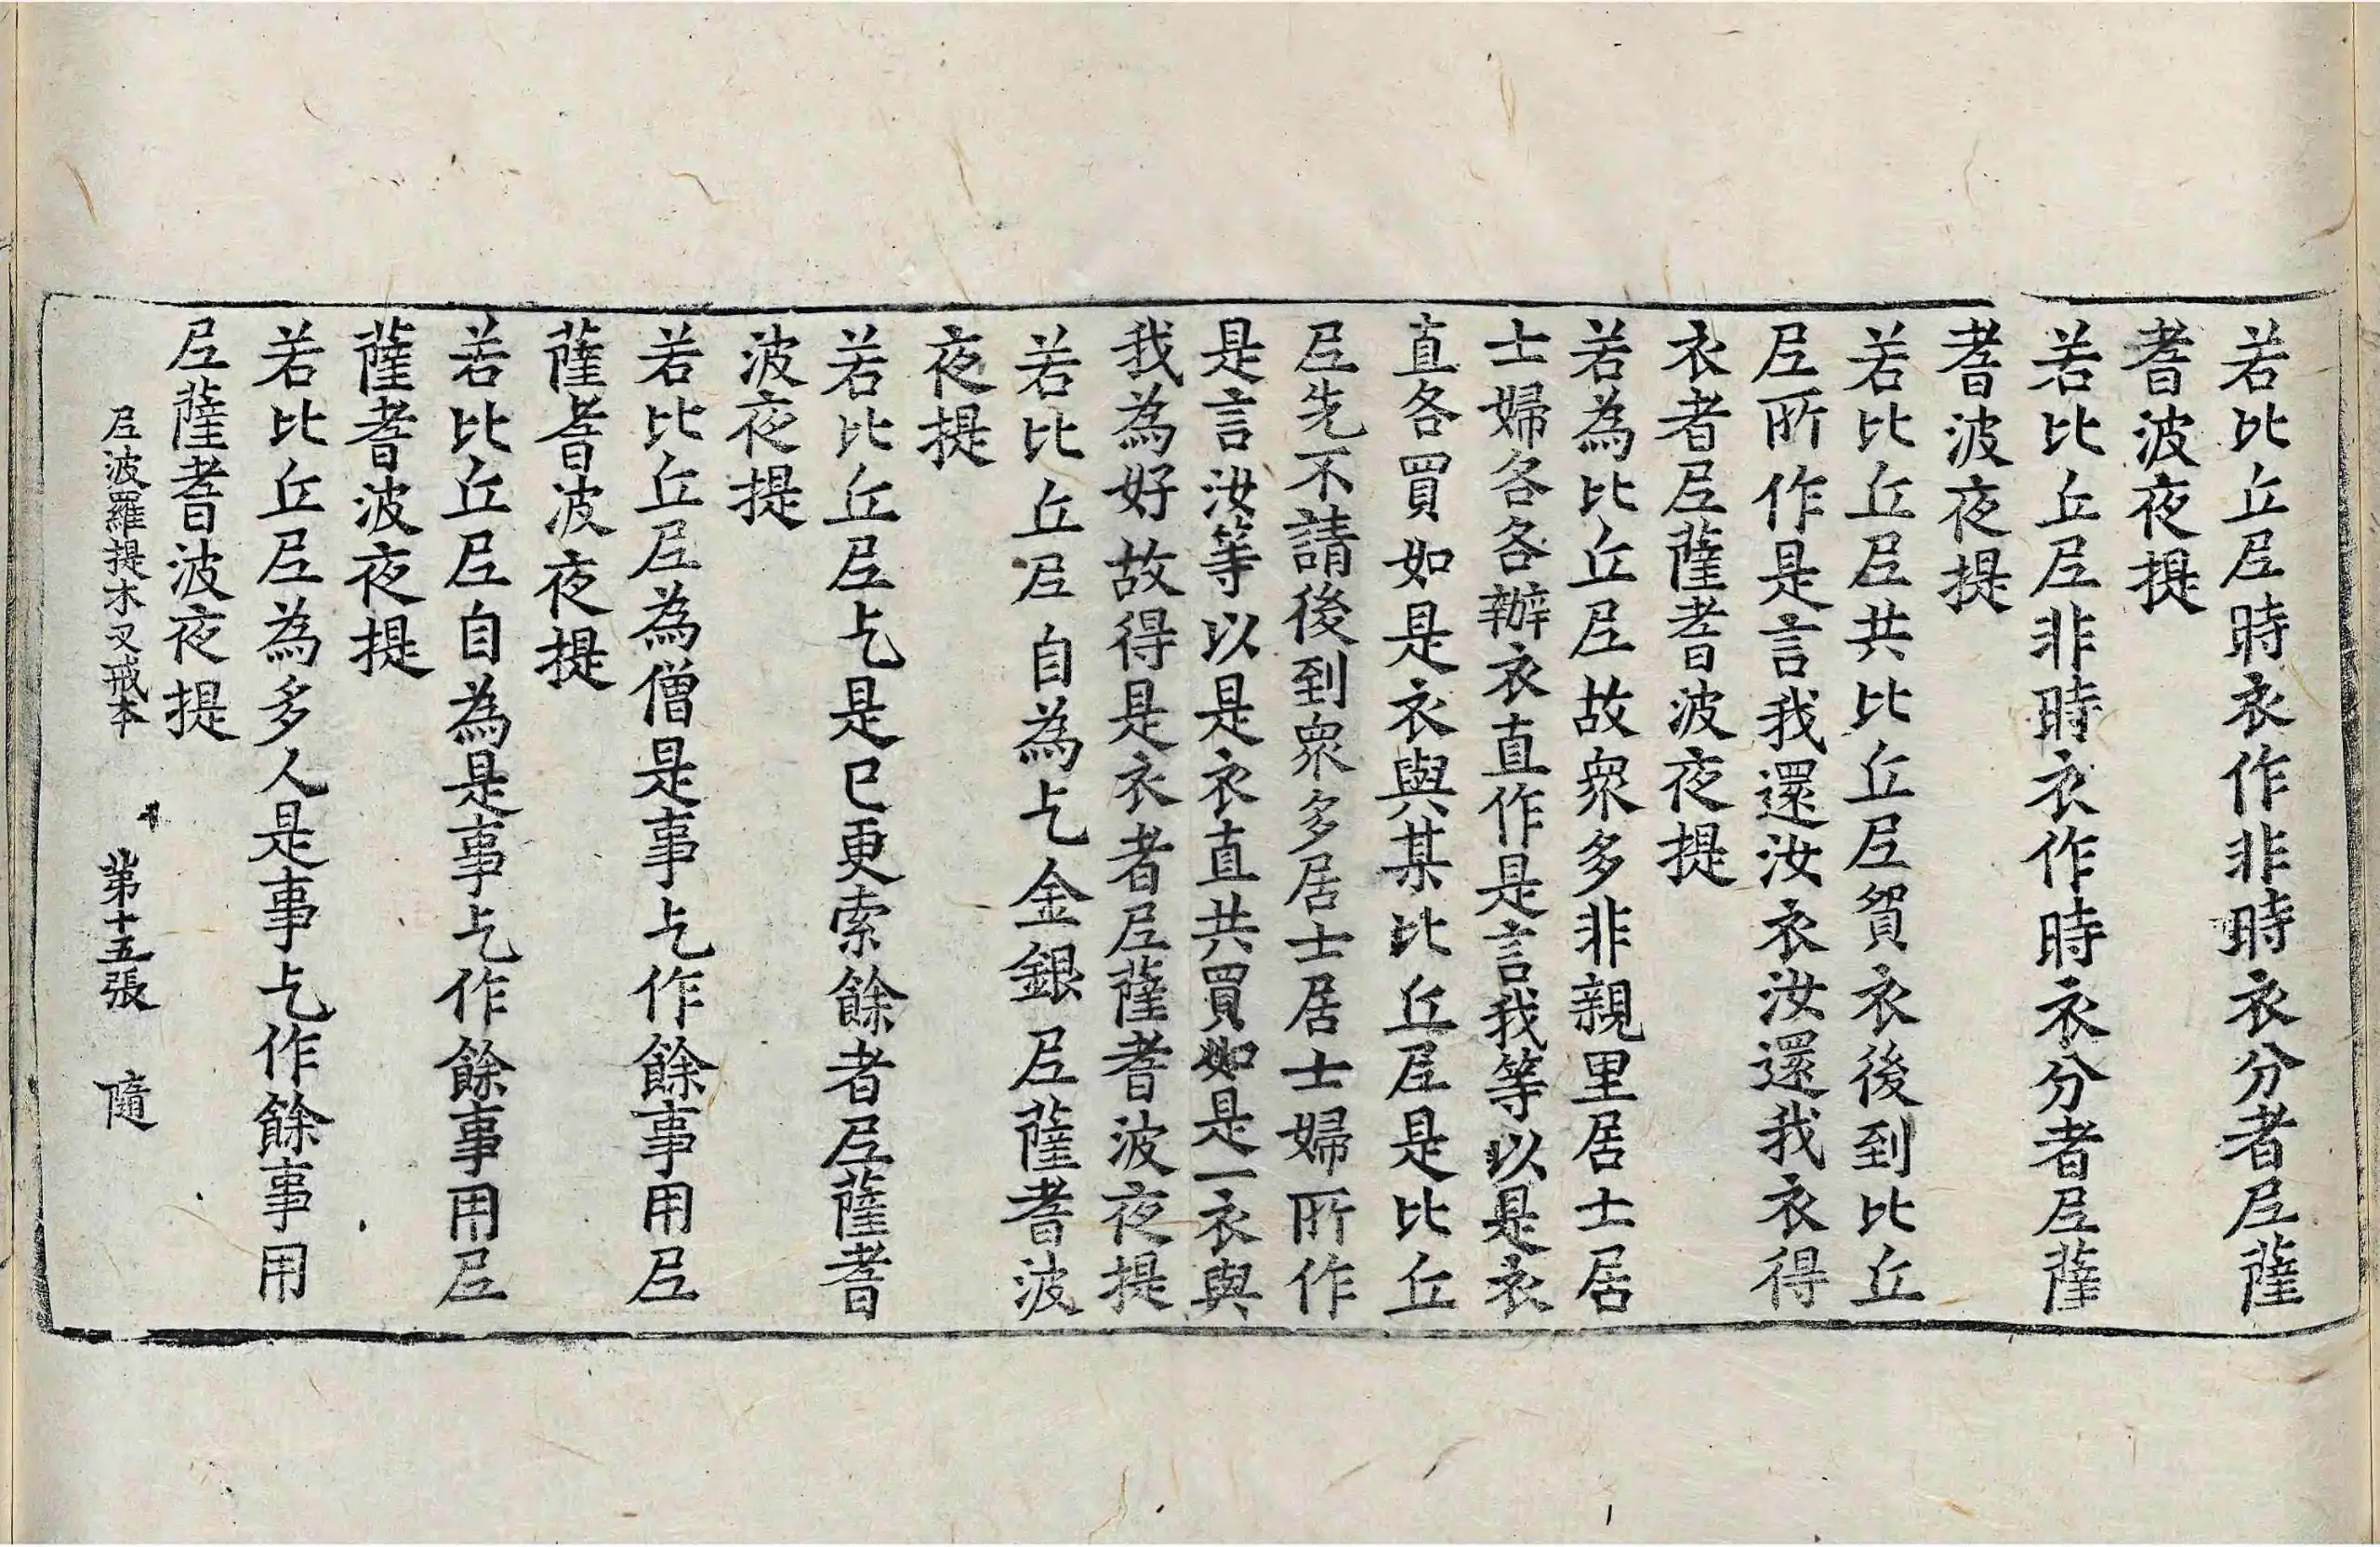 若比丘尼時衣作非時衣分者尼薩
耆波夜提
若比丘尼非時衣作時衣分者尼薩
耆波夜提
若比丘尼共比丘尼貿衣後到比丘
尼所作是言我還汝衣汝還我衣得
衣者尼薩耆波夜提
若為比丘尼故衆多非親里居士居
士婦各各辦衣直作是言我等以是衣
直各買如是衣與某比丘尼是比丘
尼先不請後到衆多居士居士婦所作
是言汝等以是衣直共買如是一衣與
我為好故得是衣者尼薩耆波夜提
若比丘尼自為乞金銀尼薩耆波
夜提
若比丘尼乞是已更索餘者尼薩耆
波夜提
若比丘尼為僧是事乞作餘事用尼
薩耆波夜提
若比丘尼自為是事乞作餘事用尼
薩耆波夜提
若比丘尼為多人是事乞作餘事用
尼薩耆波夜提
尼波羅提木叉戒本 第十五張 隨